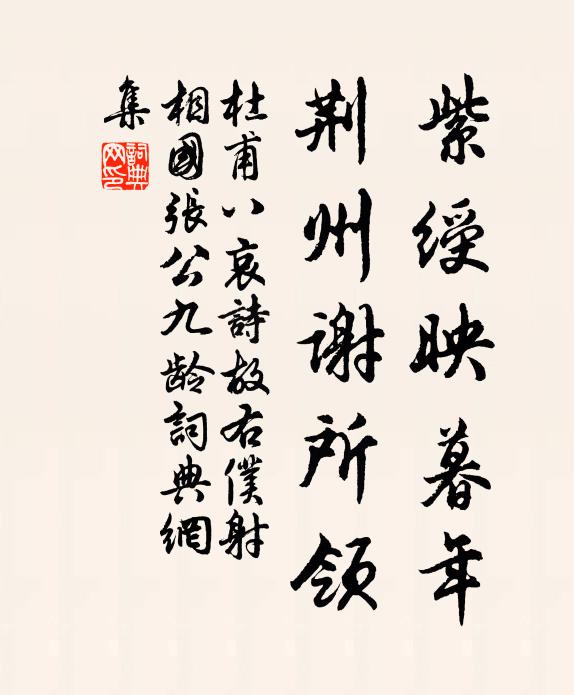 紫綬映暮年
荆州谢所領
杜甫八哀詩故右僕射
相國張公九龄詞典網
集
詞典網印